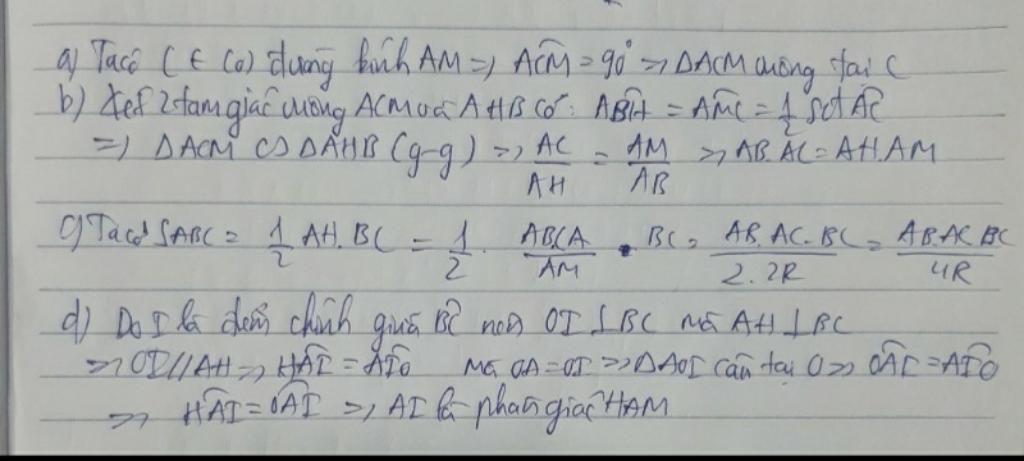 a) Ta có C ∈ (O) đường kính AM => ACM̂ = 90° => ΔACM vuông tại C
b) Xét 2 tam giác vuông ACM và AHB có: ABĤ = AMĈ = 1/2 sđ AC
=> ΔACM ∽ ΔAHB (g-g) => AC/AH = AM/AB => AB.AC = AH.AM
c) Ta có SABC = 1/2 AH.BC = 1/2 . AB.CA/AM . BC = AB.AC.BC/2.2R = AB.AC.BC/4R
d) Do I là điểm chính giữa BC nên OI ⊥ BC mà AH ⊥ BC
=> OI // AH => HAÎ = AIÔ mà OA = OI => ΔAOI cân tại O => OAÎ = AIÔ
=> HAÎ = OAÎ => AI là phân giác HAM